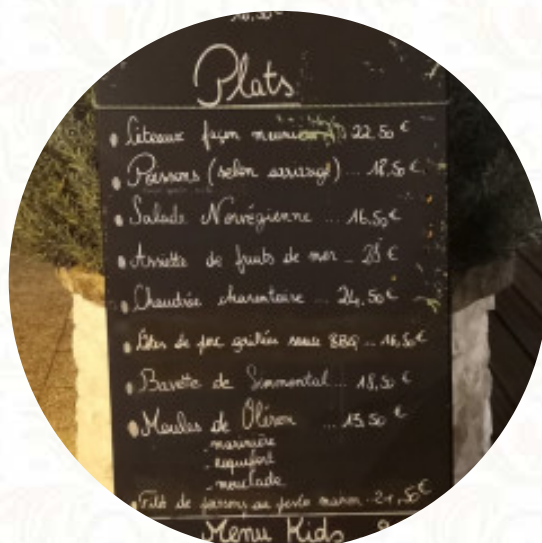 Plats
Céteaux façon meunière 22.50 €
Poissons (selon arrivage) ... 18,50 €
Salade Norvégienne ... 16,50 €
Assiette de fruits de mer _ 23 €
Chaudrée charentaise ... 24,50 €
Côtes de porc grillées sauce BBQ ... 16,50 €
Bavette de Simmental ... 18,50 €
Moules de Oléron ... 13,50 €
- marinière
- roquefort
- mouclade
Filet de poissons au pesto maison - 21,50 €
Menu Kids